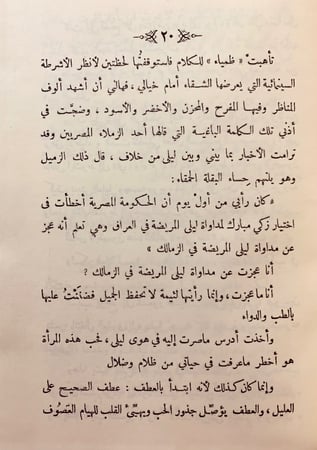 ٢٠
تأهبتْ « ظمياء » للكلام فاستوقفتُها لحظتين لأنظر الأشرطة
السينمائية التي يعرضها الشقاء أمام خيالي ، فهالني أن أشهد ألوف
المناظر وفيها المفرح والمحزن والأخضر والأسود ، وضجّت في
أذني تلك الكلمة الباغية التي قالها أحد الزملاء المصريين وقد
ترامت الأخبار بما بيني وبين ليلى من خلاف ، قال ذلك الزميل
وهو يلتهم حِساء البقلة الحمقاء :
« كان رأيي من أول يوم أن الحكومة المصرية أخطأت في
اختيار زكي مبارك لمداواة ليلى المريضة في العراق وهي تعلم أنه عجز
عن مداواة ليلى المريضة في الزمالك »
أنا عجزت عن مداواة ليلى المريضة في الزمالك ؟
أنا ما عجزت ، وإنما رأيتها لئيمة لا تحفظ الجميل فضننْتُ عليها
بالطب والدواء
وأخذت أدرس ماصرت إليه في هوى ليلى ، فحب هذه المرأة
هو أخطر ماعرفت في حياتي من ظلام وضلال
وإنما كان كذلك لأنه ابتدأ بالعطف : عطف الصحيح على
العليل ، والعطف يؤصّل جذور الحب ويهيّئ القلب للهيام العَصُوف